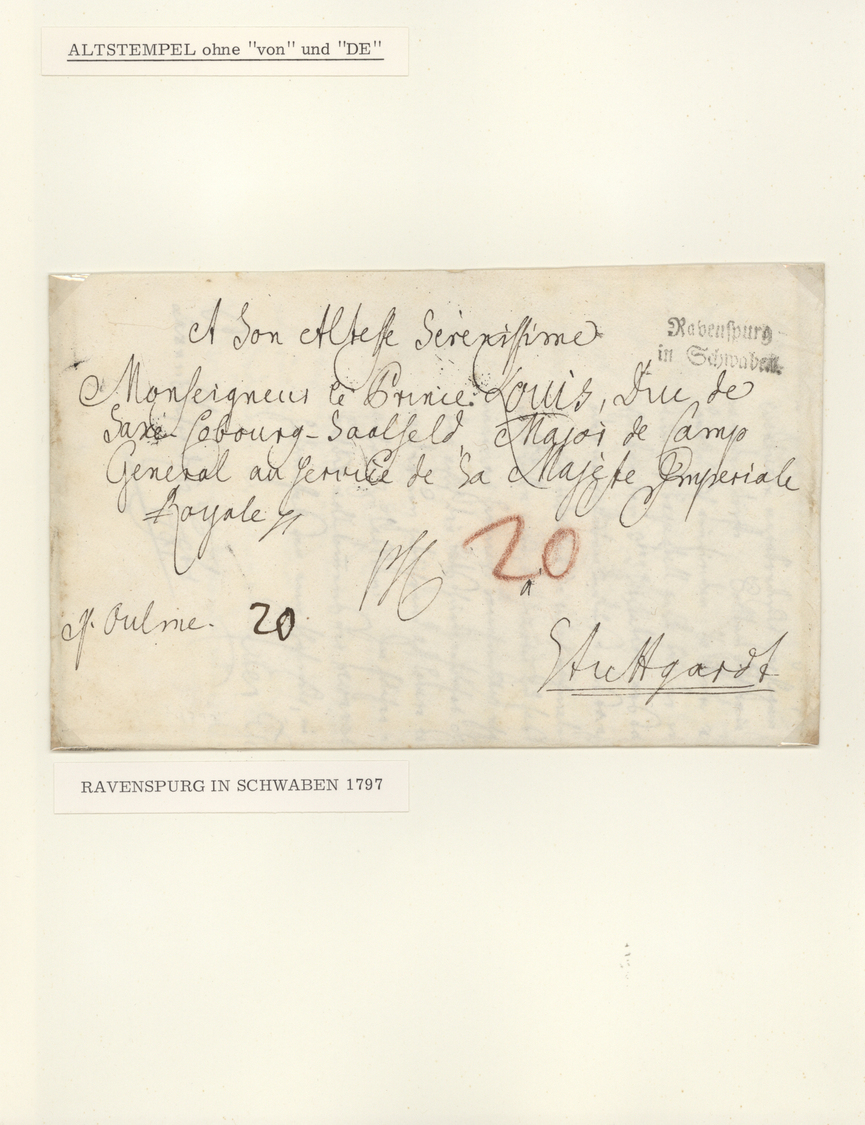 ALTSTEMPEL ohne "von" und "DE"
A Son Altesse Serenissime
Ravenspurg
in Schwaben.
Monseigneur le Prince Louis, Duc de
Saxe Cobourg-Saalfeld, Major de Camp
General au Service de Sa Majeste Imperiale
Royale
20
a
p. Oulme. 20
Stuttgardt
RAVENSPURG IN SCHWABEN 1797